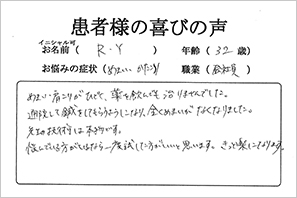 患者様の喜びの声
イニシャル可
お名前 ( R.Y ) 年齢 ( 32 歳)
お悩みの症状 (めまい かたこり) 職業 (会社員)
めまい・肩こりがひどく、薬を飲んでも治りませんでした。
通院して鍼をしてもらうようになり、全くめまいがなくなりました。
先生の技術は本物です。
悩んでいる方がいるなら一度試した方がいいと思います。きっと楽になります。